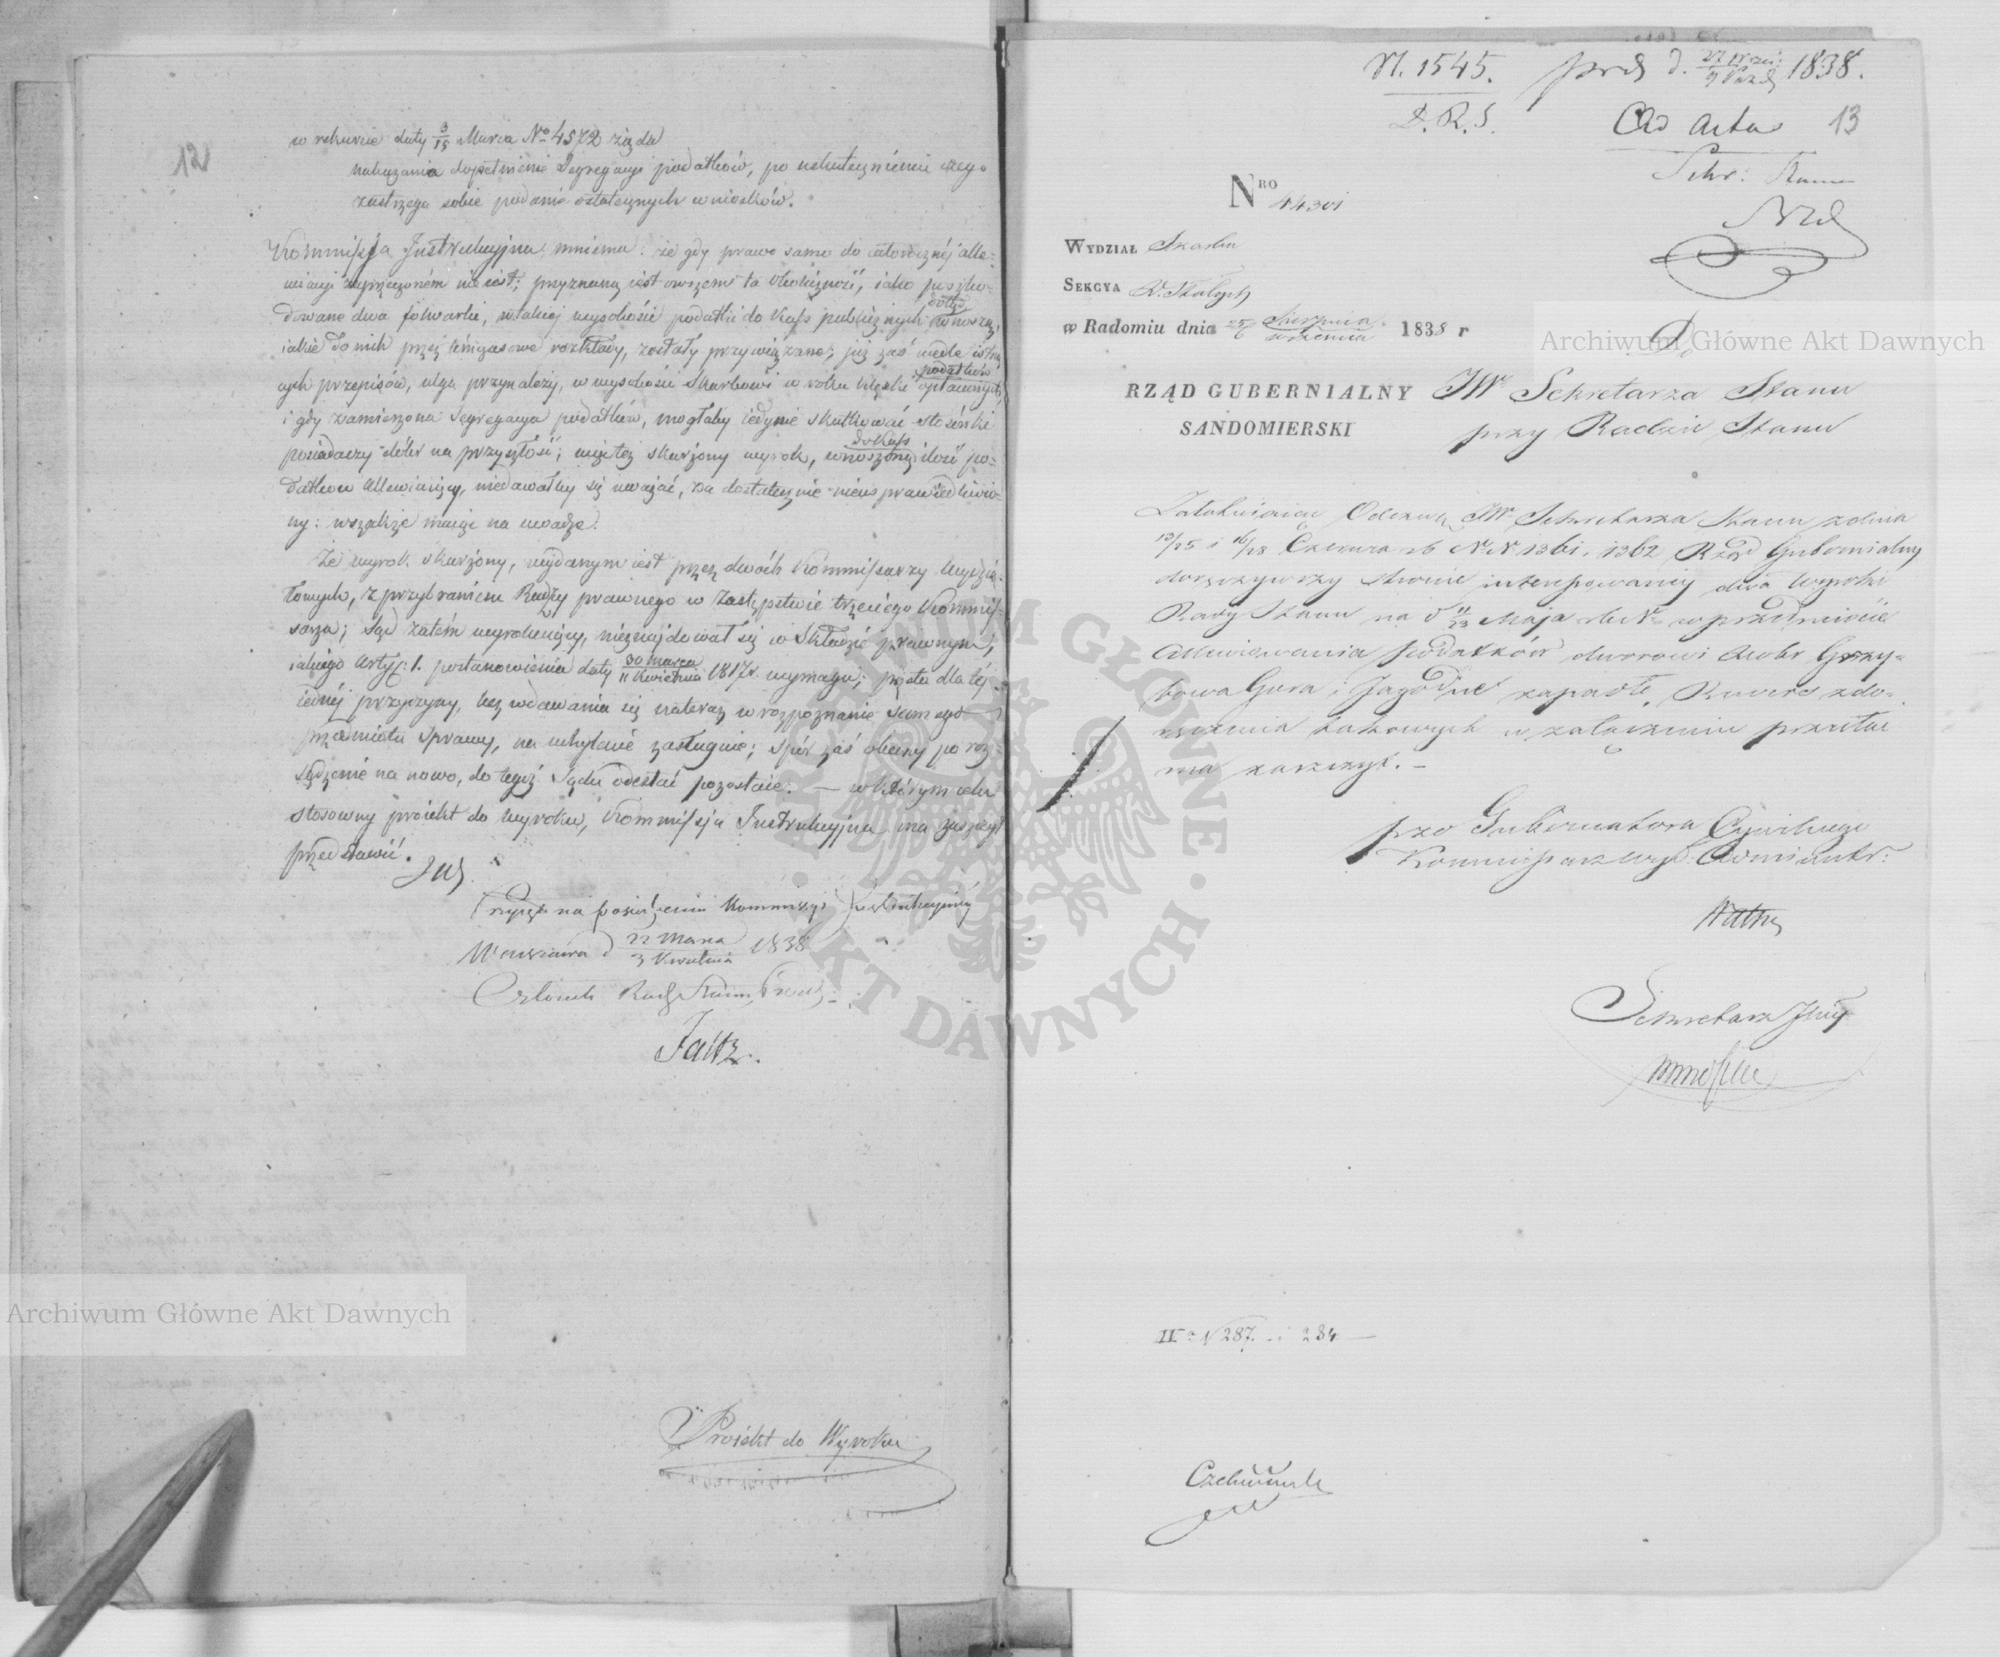 12
w rekursie daty 3/15 Marca No 4572 żąda
nakazania dopełnienia Segregacyi podatków, po uskutecznieniu czego
zastrzega sobie podanie ostatecznych wniosków.
Kommissja Instrukcyjna mniema: że gdy prawo samo do całorocznéj alle-
wiacyi zaprzeczoném nie jest; przyznaną jest owszem ta okoliczność, iako poszko-
dowane dwa folwarki, w takiej wysokości podatki do Kass publicznych dotąd wnoszą,
iakie do nich przez księgasowe rozkłady, zostały przywiązane; już zaś wedle istną
cych przepisów, ulga przynależy, w wysokości Skarbowi w roku klęski podatków opłacanych,
i gdy zamierzona Segregacya podatków, mogłaby iedynie skutkować stosunki
posiadaczy dóbr na przyszłość; więc też skarżony wyrok, do Kass wnoszoną ilość po-
datków allewiaiący, niedawałby się uważać, za dostatecznie niesprawiedliwio-
ny: wszakże maiąc na uwadze.
Że wyrok skarżony, wydanym iest przez dwóch Kommissarzy Wydzia-
łowych, z przybraniem Radzcy prawnego w zastępstwie trzeciego Kommis-
sarza; Sąd zatém wyrokuiący, nieznajdował się w Składzie prawnym,
iakiego Artyk: 1. postanowienia daty 30 marca/11 Kwietnia 1817 r. wymaga; przeto dla téj
iednéj przyczyny, bez wdawania się nateraz w rozpoznanie samego
przedmiotu sprawy, na uchylenie zasługuie; spór zaś obecny po roz-
sądzenie na nowo, do tegoż Sądu odesłać pozostaie. — w którym celu
stosowny proiekt do wyroku, Kommissja Instrukcyjna ma zaszczyt
przedstawić.
Przyięto na posiedzeniu Kommissyi Instrukcyjnéj
Warszawa d 22 Marca/3 Kwietnia 1838
Członek Rady Stanu
Faltz.
Proiekt do Wyroku
N. 1545.
D. R. S.
prd d. 27 Wrze:/9 Paźd 1838.
Ad Acta 13
Sekr: Stanu
NRO 44301
WYDZIAŁ Skarbu
SEKCYA D. Stałych
w Radomiu dnia 25/6 Sierpnia/września 1838 r
RZĄD GUBERNIALNY
SANDOMIERSKI
JW Sekretarza Stanu
przy Radzie Stanu
Załatwiaiąc Odezwy JW Sekretarza Stanu z dnia
13/25 i 16/28 Czerwca rb NN 1361. 1362 Rząd Gubernialny
doręczywszy stronie interesowanéj dwa Wyroki
Rady Stanu na d 11/23 Maja rb w przedmiocie
allewiowania podatków dworowi dóbr Grzy-
bowa Gura i Jagodne zapadłe, Rewers z do-
ręczenia takowych w załączeniu przesłać
ma zaszczyt. —
pzo Gubernatora Cywilnego
Kommissarz Wyd: Administr:
Sekretarz Jlny
II N 287. i 284 —